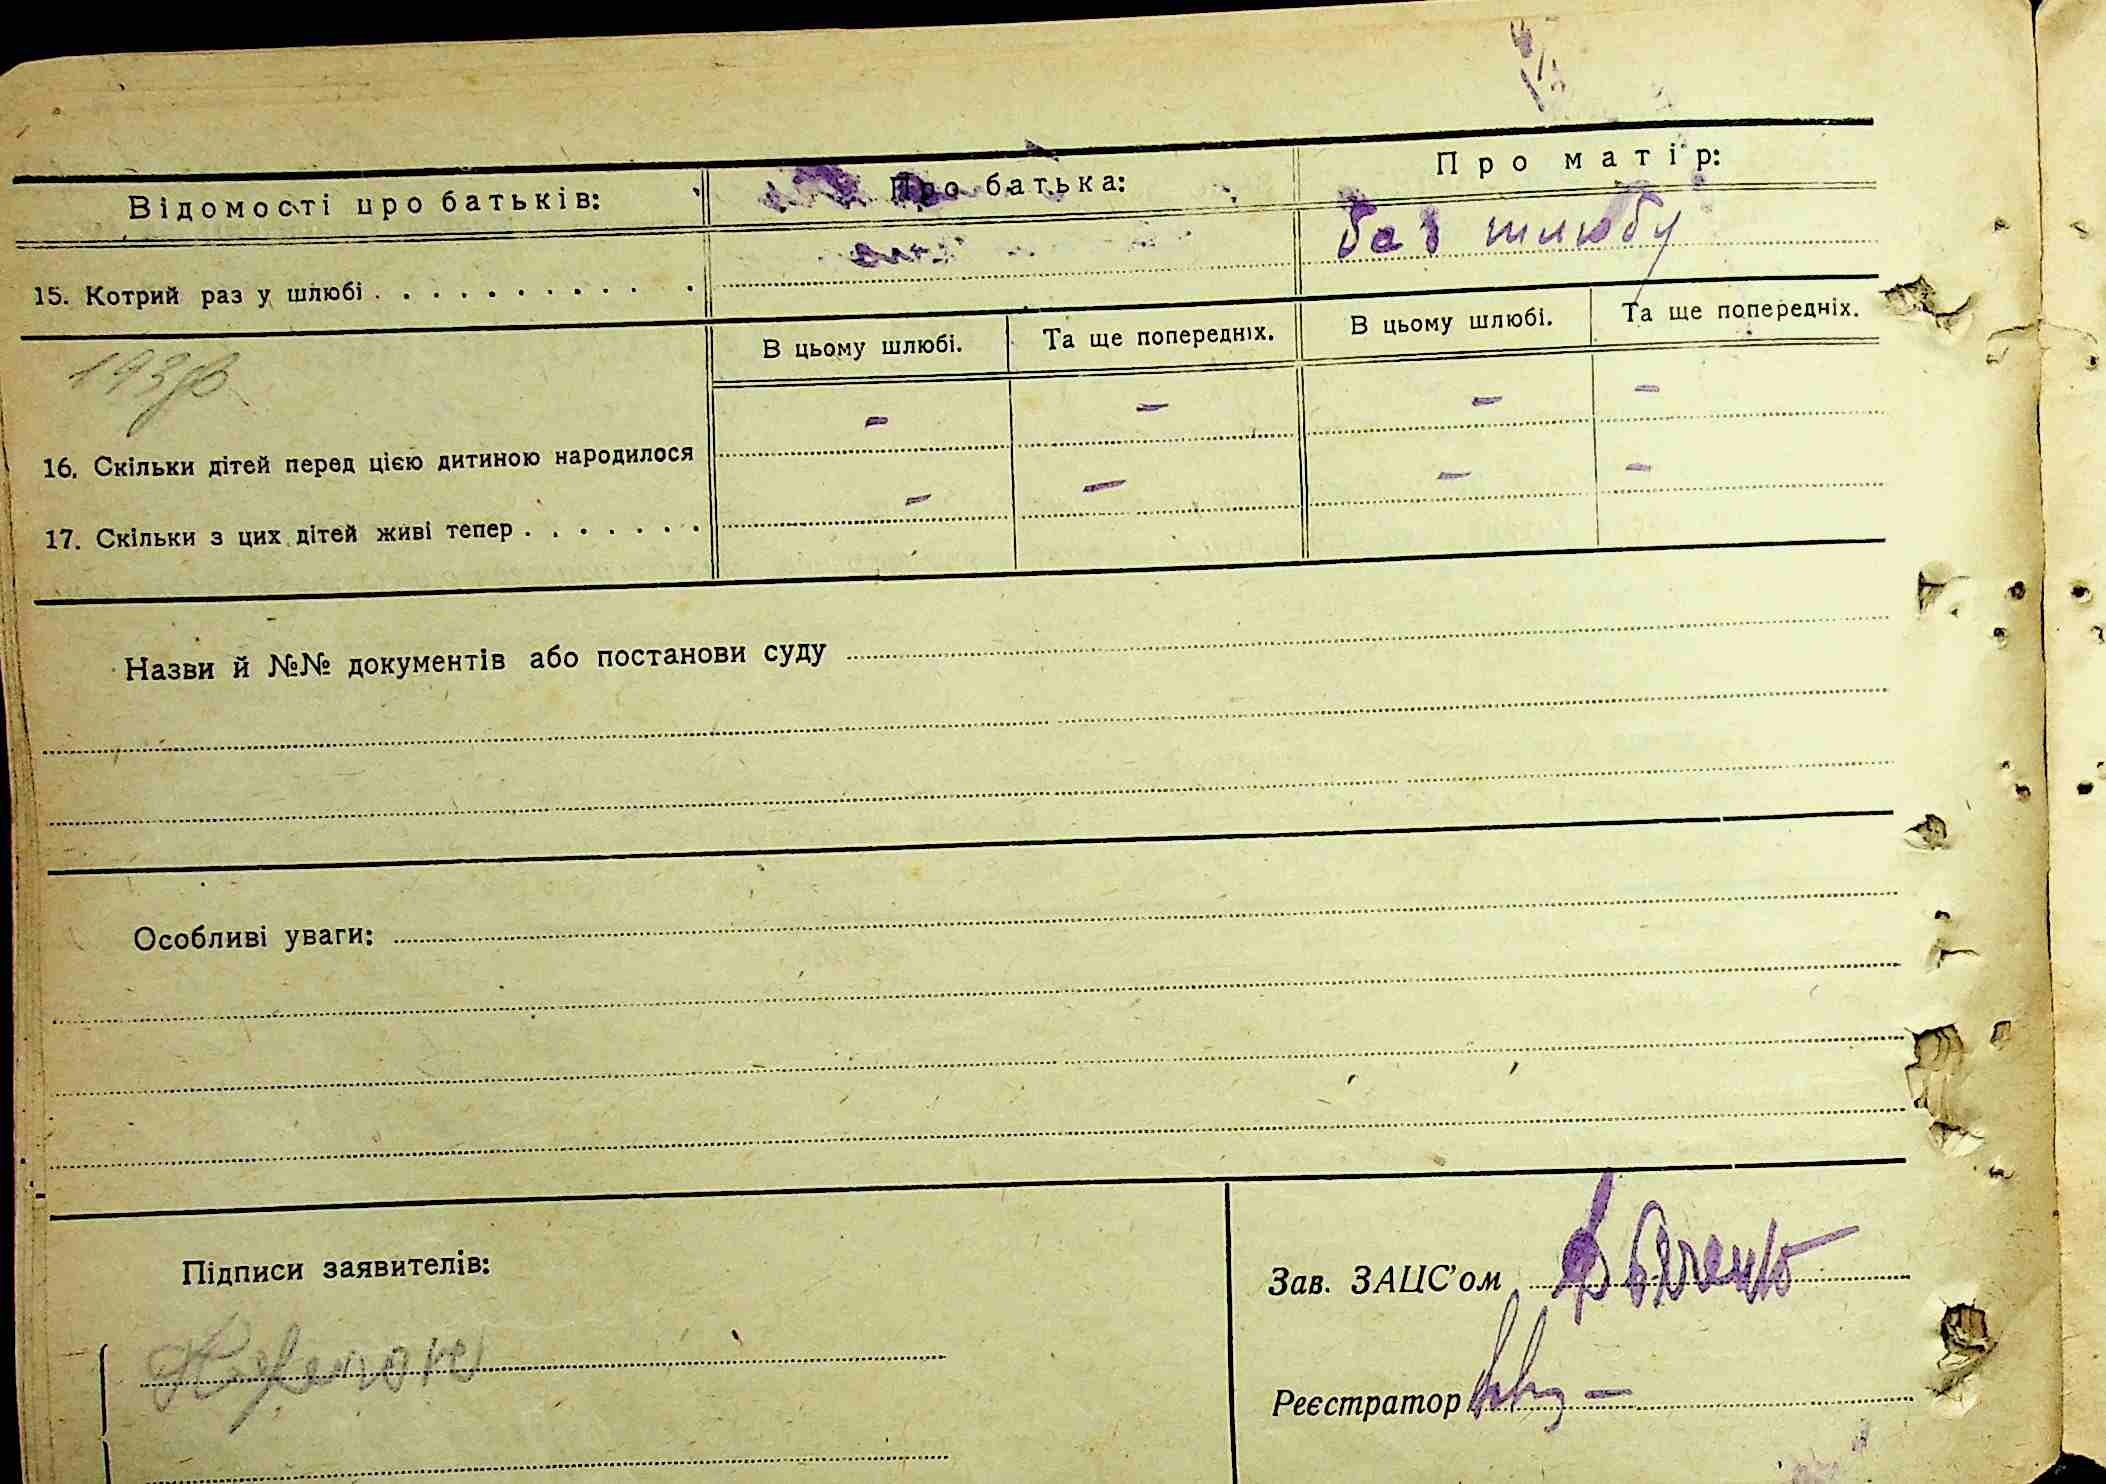 Відомості про батьків: Про батька: Про матір:
15. Котрий раз у шлюбі . . . . . . . . . . . . без шлюбу
В цьому шлюбі. Та ще попередніх. В цьому шлюбі. Та ще попередніх.
16. Скільки дітей перед цією дитиною народилося – – – –
17. Скільки з цих дітей живі тепер . . . . . . . – – – –
Назви й №№ документів або постанови суду
Особливі уваги:
Підписи заявителів:
Зав. ЗАЦС'ом
Реєстратор